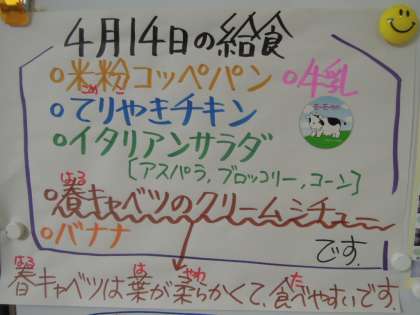 4月14日の給食
○米粉コッペパン ○牛乳
こめ こ
○てりやきチキン
○イタリアンサラダ
[アスパラ,ブロッコリー,コーン]
はる
○春キャベツのクリームシチュー
○バナナ
です.
はる は やわ た
春キャベツは葉が柔らかくて、食べやすいです.